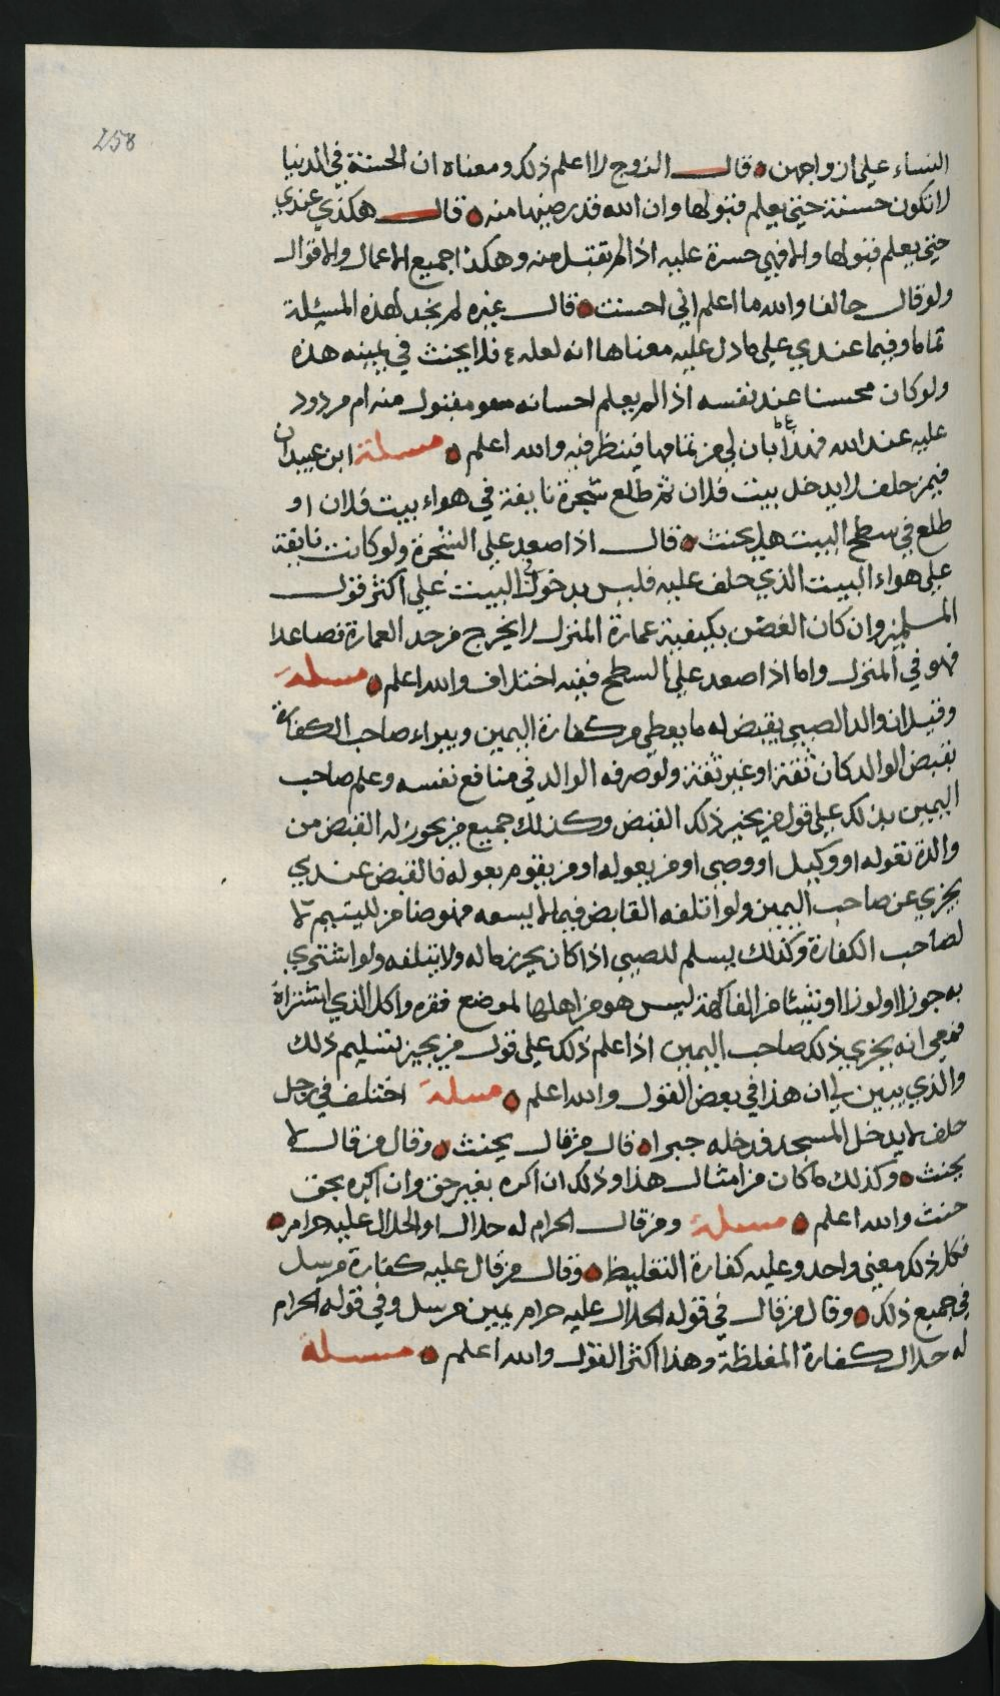 258
النساء على ازواجهن قال الزوج لا اعلم ذلك ومعناه ان الحسنة في الدنيا
لا تكون حسنة حتى يعلم قبولها وان الله قد رضيها منه قال هكذي عندي
حتى يعلم قبولها والا فهي حسرة عليه اذا لم تقتبل منه وهكذا جميع الاعمال والاقوال
ولو قال حالفا والله ما اعلم اني احسنت قال غيره لم نجد لهذه المسئلة
تماما وفيما عندي على ما دل عليه معناها انه لعله ع فلا يحنث في يمينه هذه
ولو كان محسنا عند نفسه اذا لم يعلم احسانه هو مقبول منه ام مردود
عليه عند الله فهذا ما بان لي من تمامها فينظر فيه والله اعلم مسئلة ابن عبيدان
فيمن حلف لا يدخل بيت فلان ثم طلع شجرة نايفة في هواء بيت فلان او
طلع في سطح البيت هل يحنث قال اذا صعد على الشجرة ولو كانت نايفة
على هواء البيت الذي حلف عليه فليس بدخول في البيت على اكثر قول
المسلمين وان كان الغصن بكيفية عمارة المنزل لا يخرج من حد العمارة فصاعدا
فهو في المنزل واما اذا صعد على السطح ففيه اختلاف والله اعلم مسئلة
وقيل ان والد الصبي يقبض له ما يعطى من كفارة اليمين ويبراء صاحب الكفارة
بقبض الوالد كان ثقة او غير ثقة ولو صرفه الوالد في منافع نفسه وعلم صاحب
اليمين بذلك على قول من يجيز ذلك القبض وكذلك جميع من يجوز له القبض من
والدة تعوله او وكيل او وصي او من يعوله او من يقوم بعوله فالقبض عندي
يجزي عن صاحب اليمين ولو اتلفه القابض فيما لا يسعه فهو ضامن لليتيم لا
لصاحب الكفارة وكذلك يسلم للصبي اذا كان يحرز ماله ولا يتلفه ولو اشترى
به جوزا او لوزا او شيئا من الفاكهة ليس هو من اهلها لموضع فقره واكل الذي اشتراه
فمعي انه يجزي ذلك صاحب اليمين اذا علم ذلك على قول من يجيز تسليم ذلك
والذي يبين لي ان هذا في بعض القول والله اعلم مسئلة اختلف في رجل
حلف لا يدخل المسجد فدخله جبرا قال من قال يحنث وقال من قال لا
يحنث وكذلك ما كان من امثال هذا وذلك ان اكره بغير حق وان اكره بحق
حنث والله اعلم مسئلة ومن قال الحرام له حلال او الحلال عليه حرام
فكل ذلك معنى واحد وعليه كفارة التغليظ وقال من قال عليه كفارة مرسل
في جميع ذلك وقال من قال في قوله الحلال عليه حرام يمين مرسل وفي قوله الحرام
له حلال كفارة المغلظة وهذا اكثر القول والله اعلم مسئلة